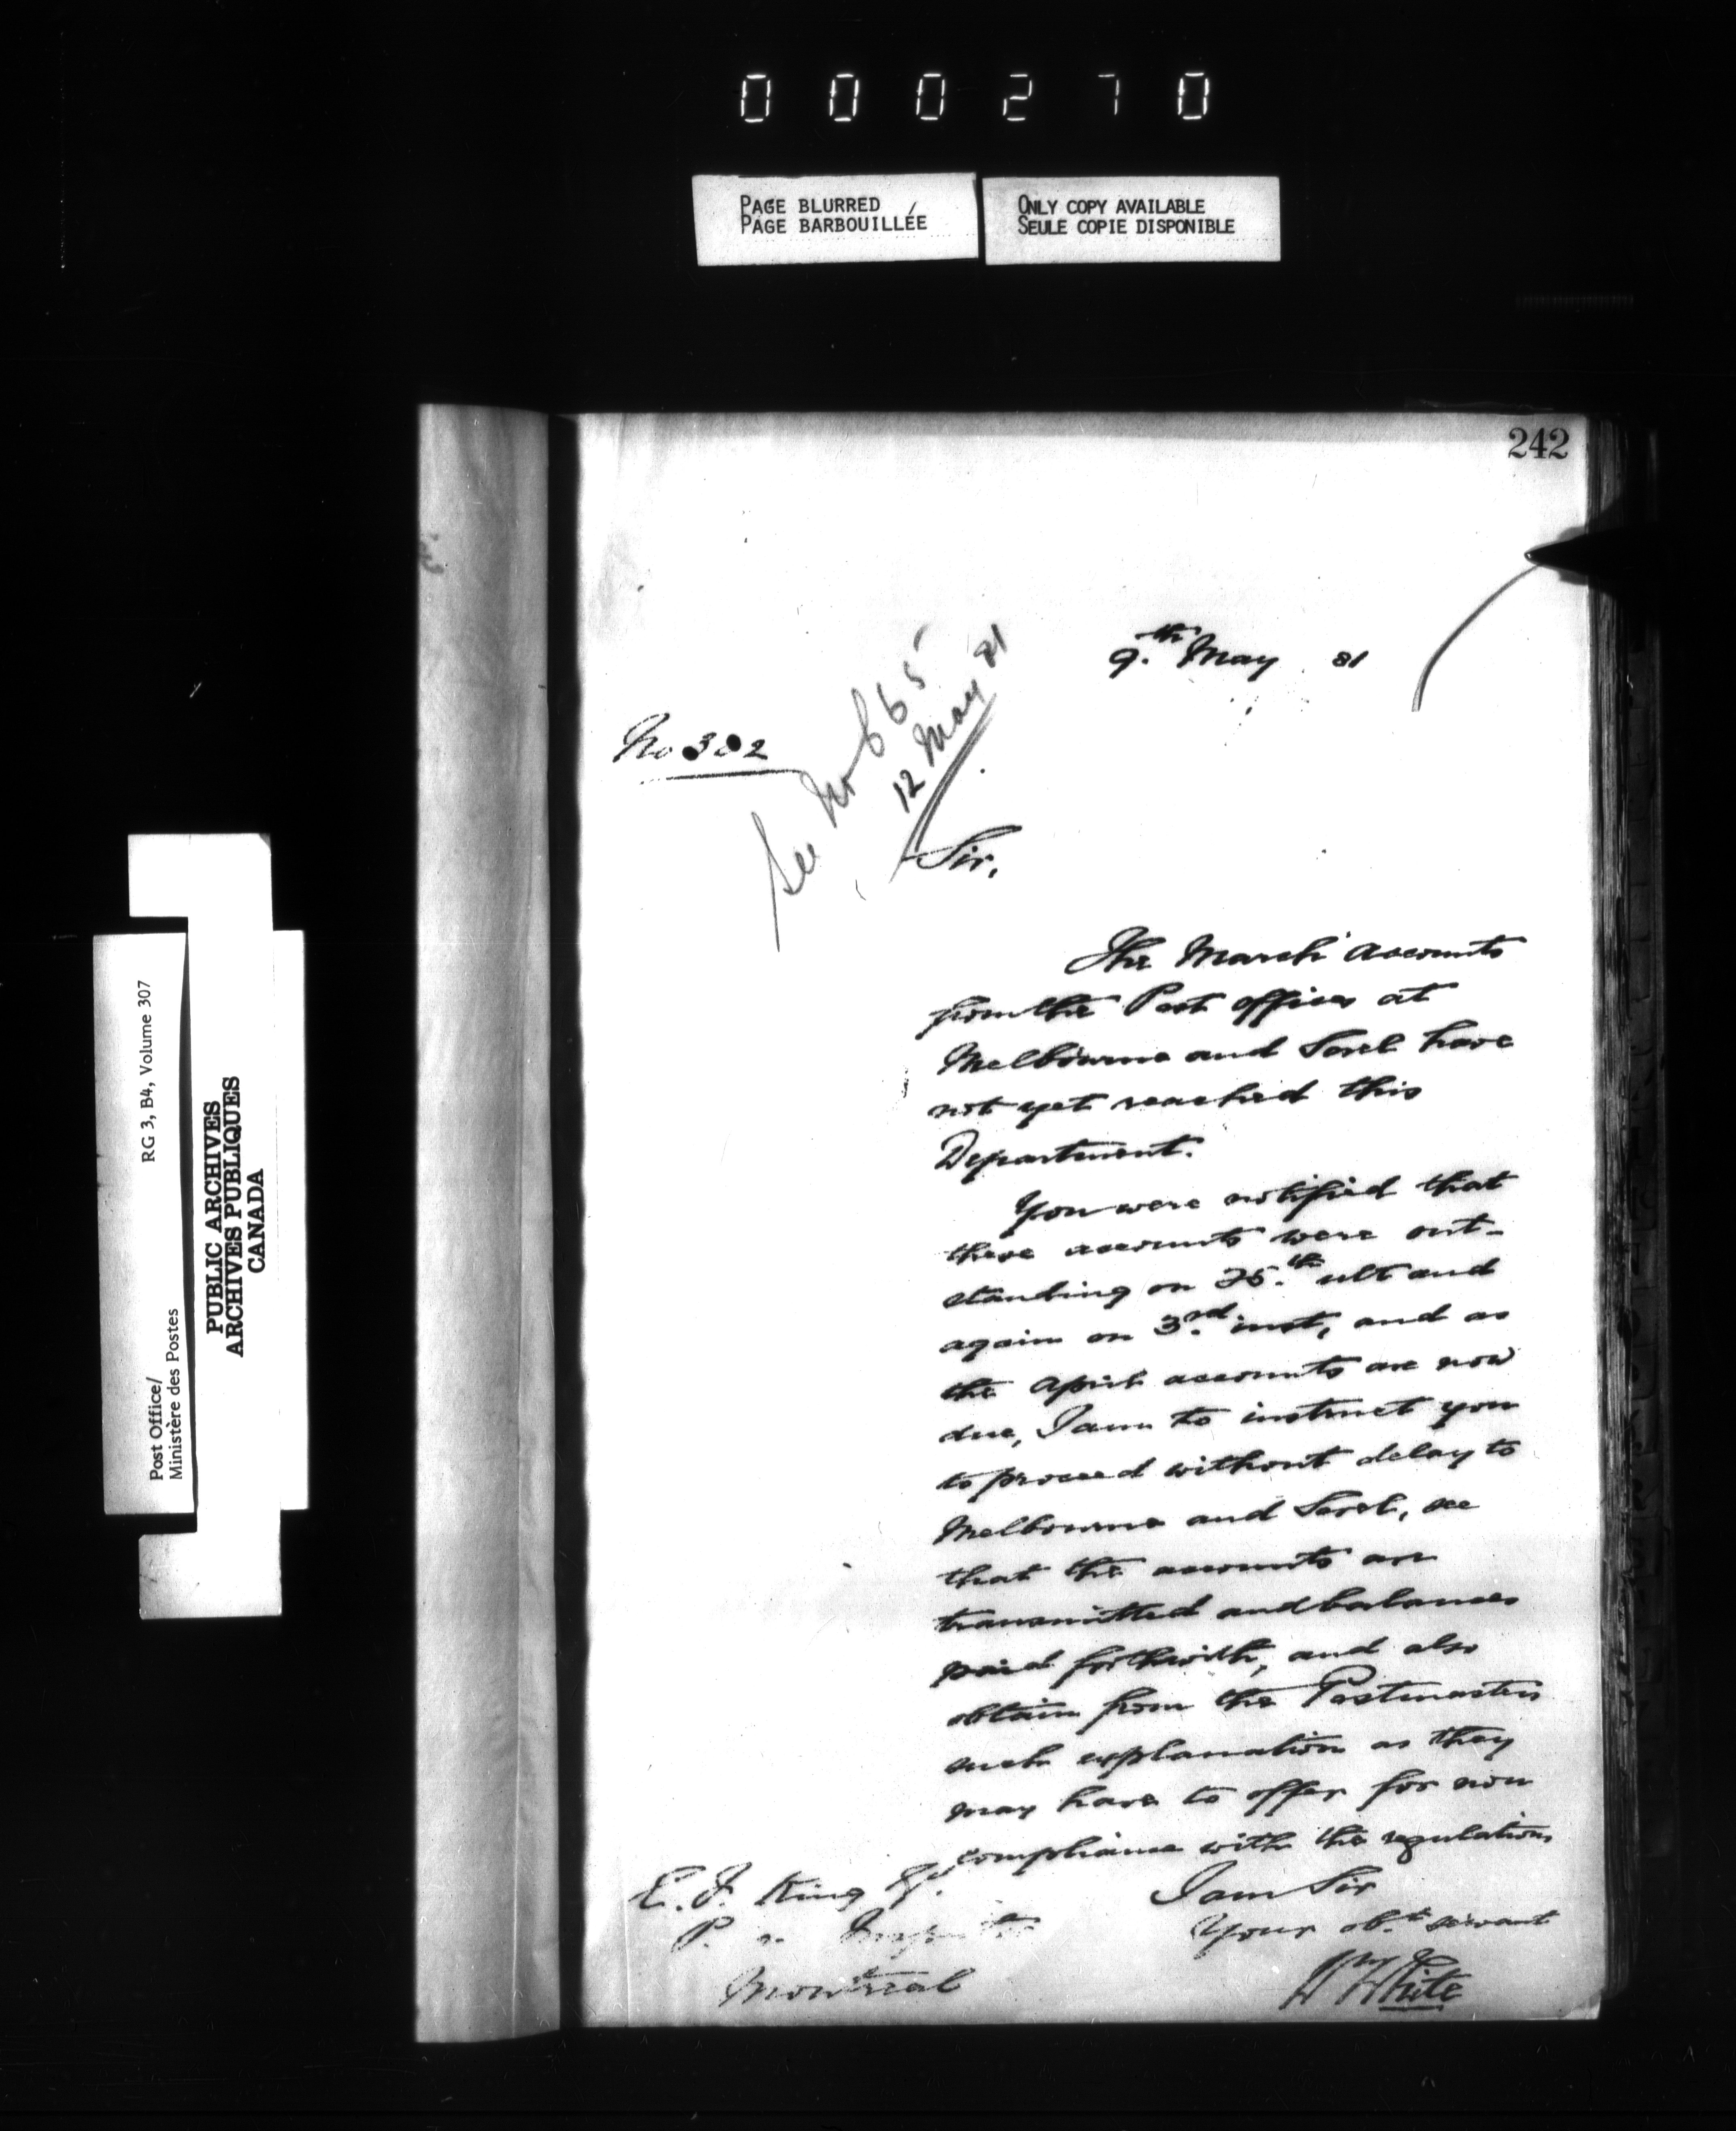 000270
PAGE BLURRED
PAGE BARBOUILLÉE
ONLY COPY AVAILABLE
SEULE COPIE DISPONIBLE
242
9.th May 81
No 302
See No 665
12 May 81
Sir,
The March accounts
from the Post offices at
Melbourne and Sorel have
not yet reached this
Department.
You were notified that
these accounts were out-
standing on 25.th ult and
again on 3.rd inst, and as
the April accounts are now
due, I am to instruct you
to proceed without delay to
Melbourne and Sorel, see
that the accounts are
transmitted and balances
paid forthwith, and also
obtain from the Postmasters
such explanation as they
may have to offer for non
compliance with the regulations
I am Sir
Your ob.t servant
Wm White
E. F. King Esq.
P. O. Inspector
Montreal
Post Office/
Ministère des Postes
RG 3, B4, Volume 307
PUBLIC ARCHIVES
ARCHIVES PUBLIQUES
CANADA